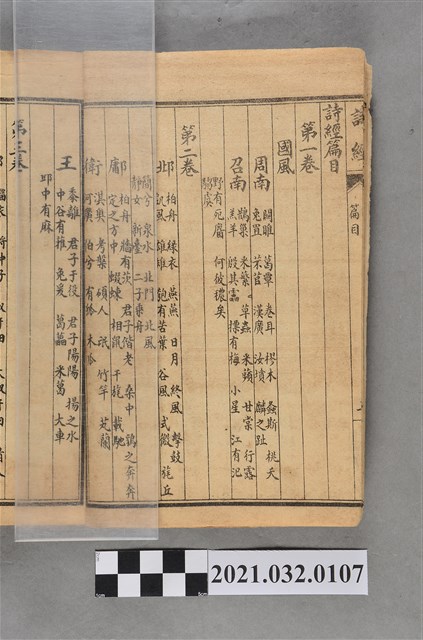 詩經
篇目
詩經篇目
第一卷
國風
周南
關雎 葛覃 卷耳 樛木 螽斯 桃夭
兔罝 芣苢 漢廣 汝墳 麟之趾
召南
鵲巢 采蘩 草蟲 采蘋 甘棠 行露
羔羊 殷其靁 摽有梅 小星 江有汜
野有死麕 何彼穠矣
騶虞
第二卷
邶
柏舟 綠衣 燕燕 日月 終風 擊鼓
凱風 雄雉 匏有苦葉 谷風 式微 旄丘
簡兮 泉水 北門 北風
靜女 新臺 二子乘舟
鄘
柏舟 牆有茨 君子偕老 桑中 鶉之奔奔
定之方中 蝃蝀 相鼠 干旄 載馳
衛
淇奧 考槃 碩人 氓 竹竿 芄蘭
河廣 伯兮 有狐 木瓜
王
黍離 君子于役 君子陽陽 揚之水
中谷有蓷 兔爰 葛藟 采葛 大車
邱中有麻
第三卷
2021.032.0107